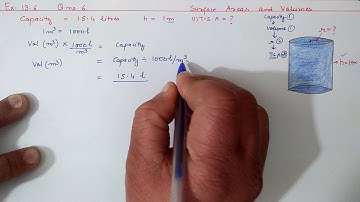 Ex- 13.6 Q-no. 6 Surface Areas and Volumes
Capacity = 15.4 litres h = 1m (i) T.S.A = ?
1m³ = 1000l
Vol (m³) × 1000l/m³ = Capacity
Vol (m³) = Capacity ÷ 1000l/m³
= 15.4 l
capacity ①
↓
volume ①
↓
r ②
↓
TSA
r=?
h=1m